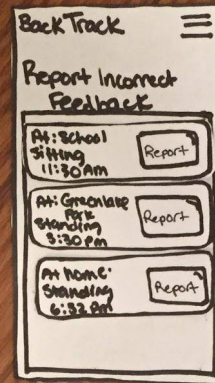 BackTrack
Report Incorrect
Feedback
At: School
Sitting
11:30 Am
Report
At: Greenlake
Park
Standing
3:30 pm
Report
At home:
Standing
6:32 pm
Report